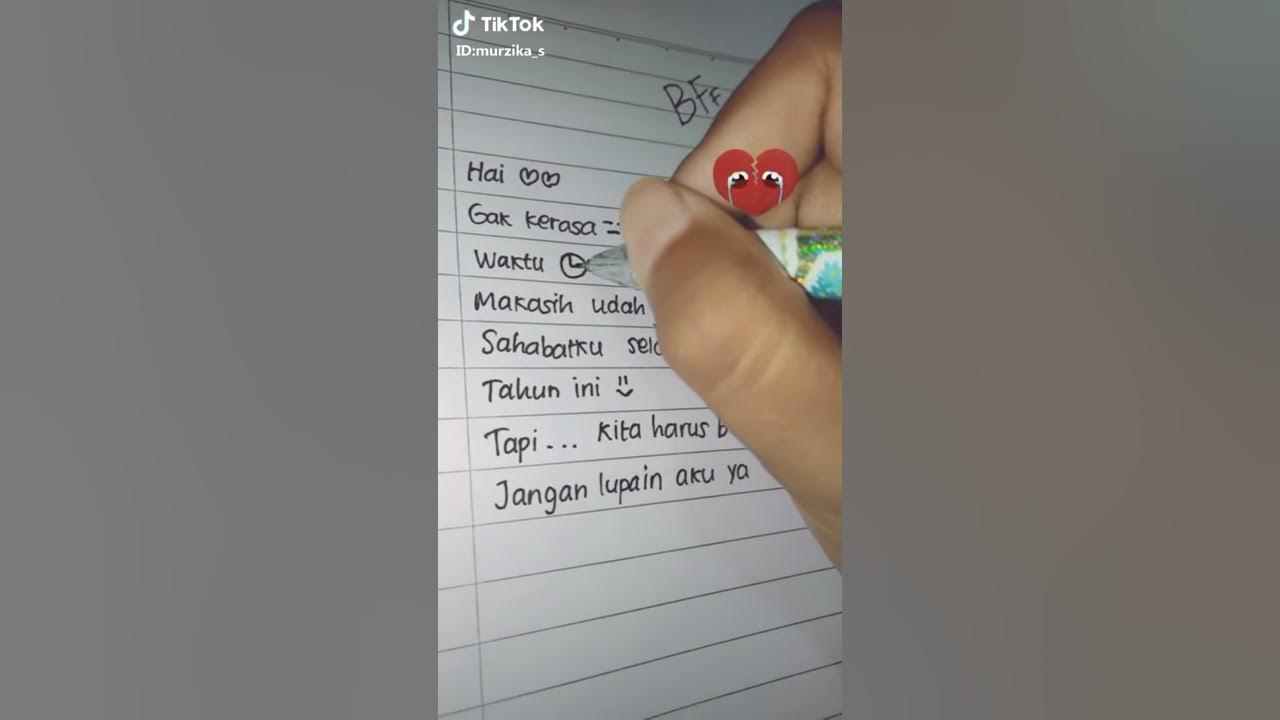 TikTok
ID:murzika_s
BFF
Hai ♡♡
Gak kerasa
Waktu
Makasih udah
Sahabatku
Tahun ini
Tapi... kita harus
Jangan lupain aku ya